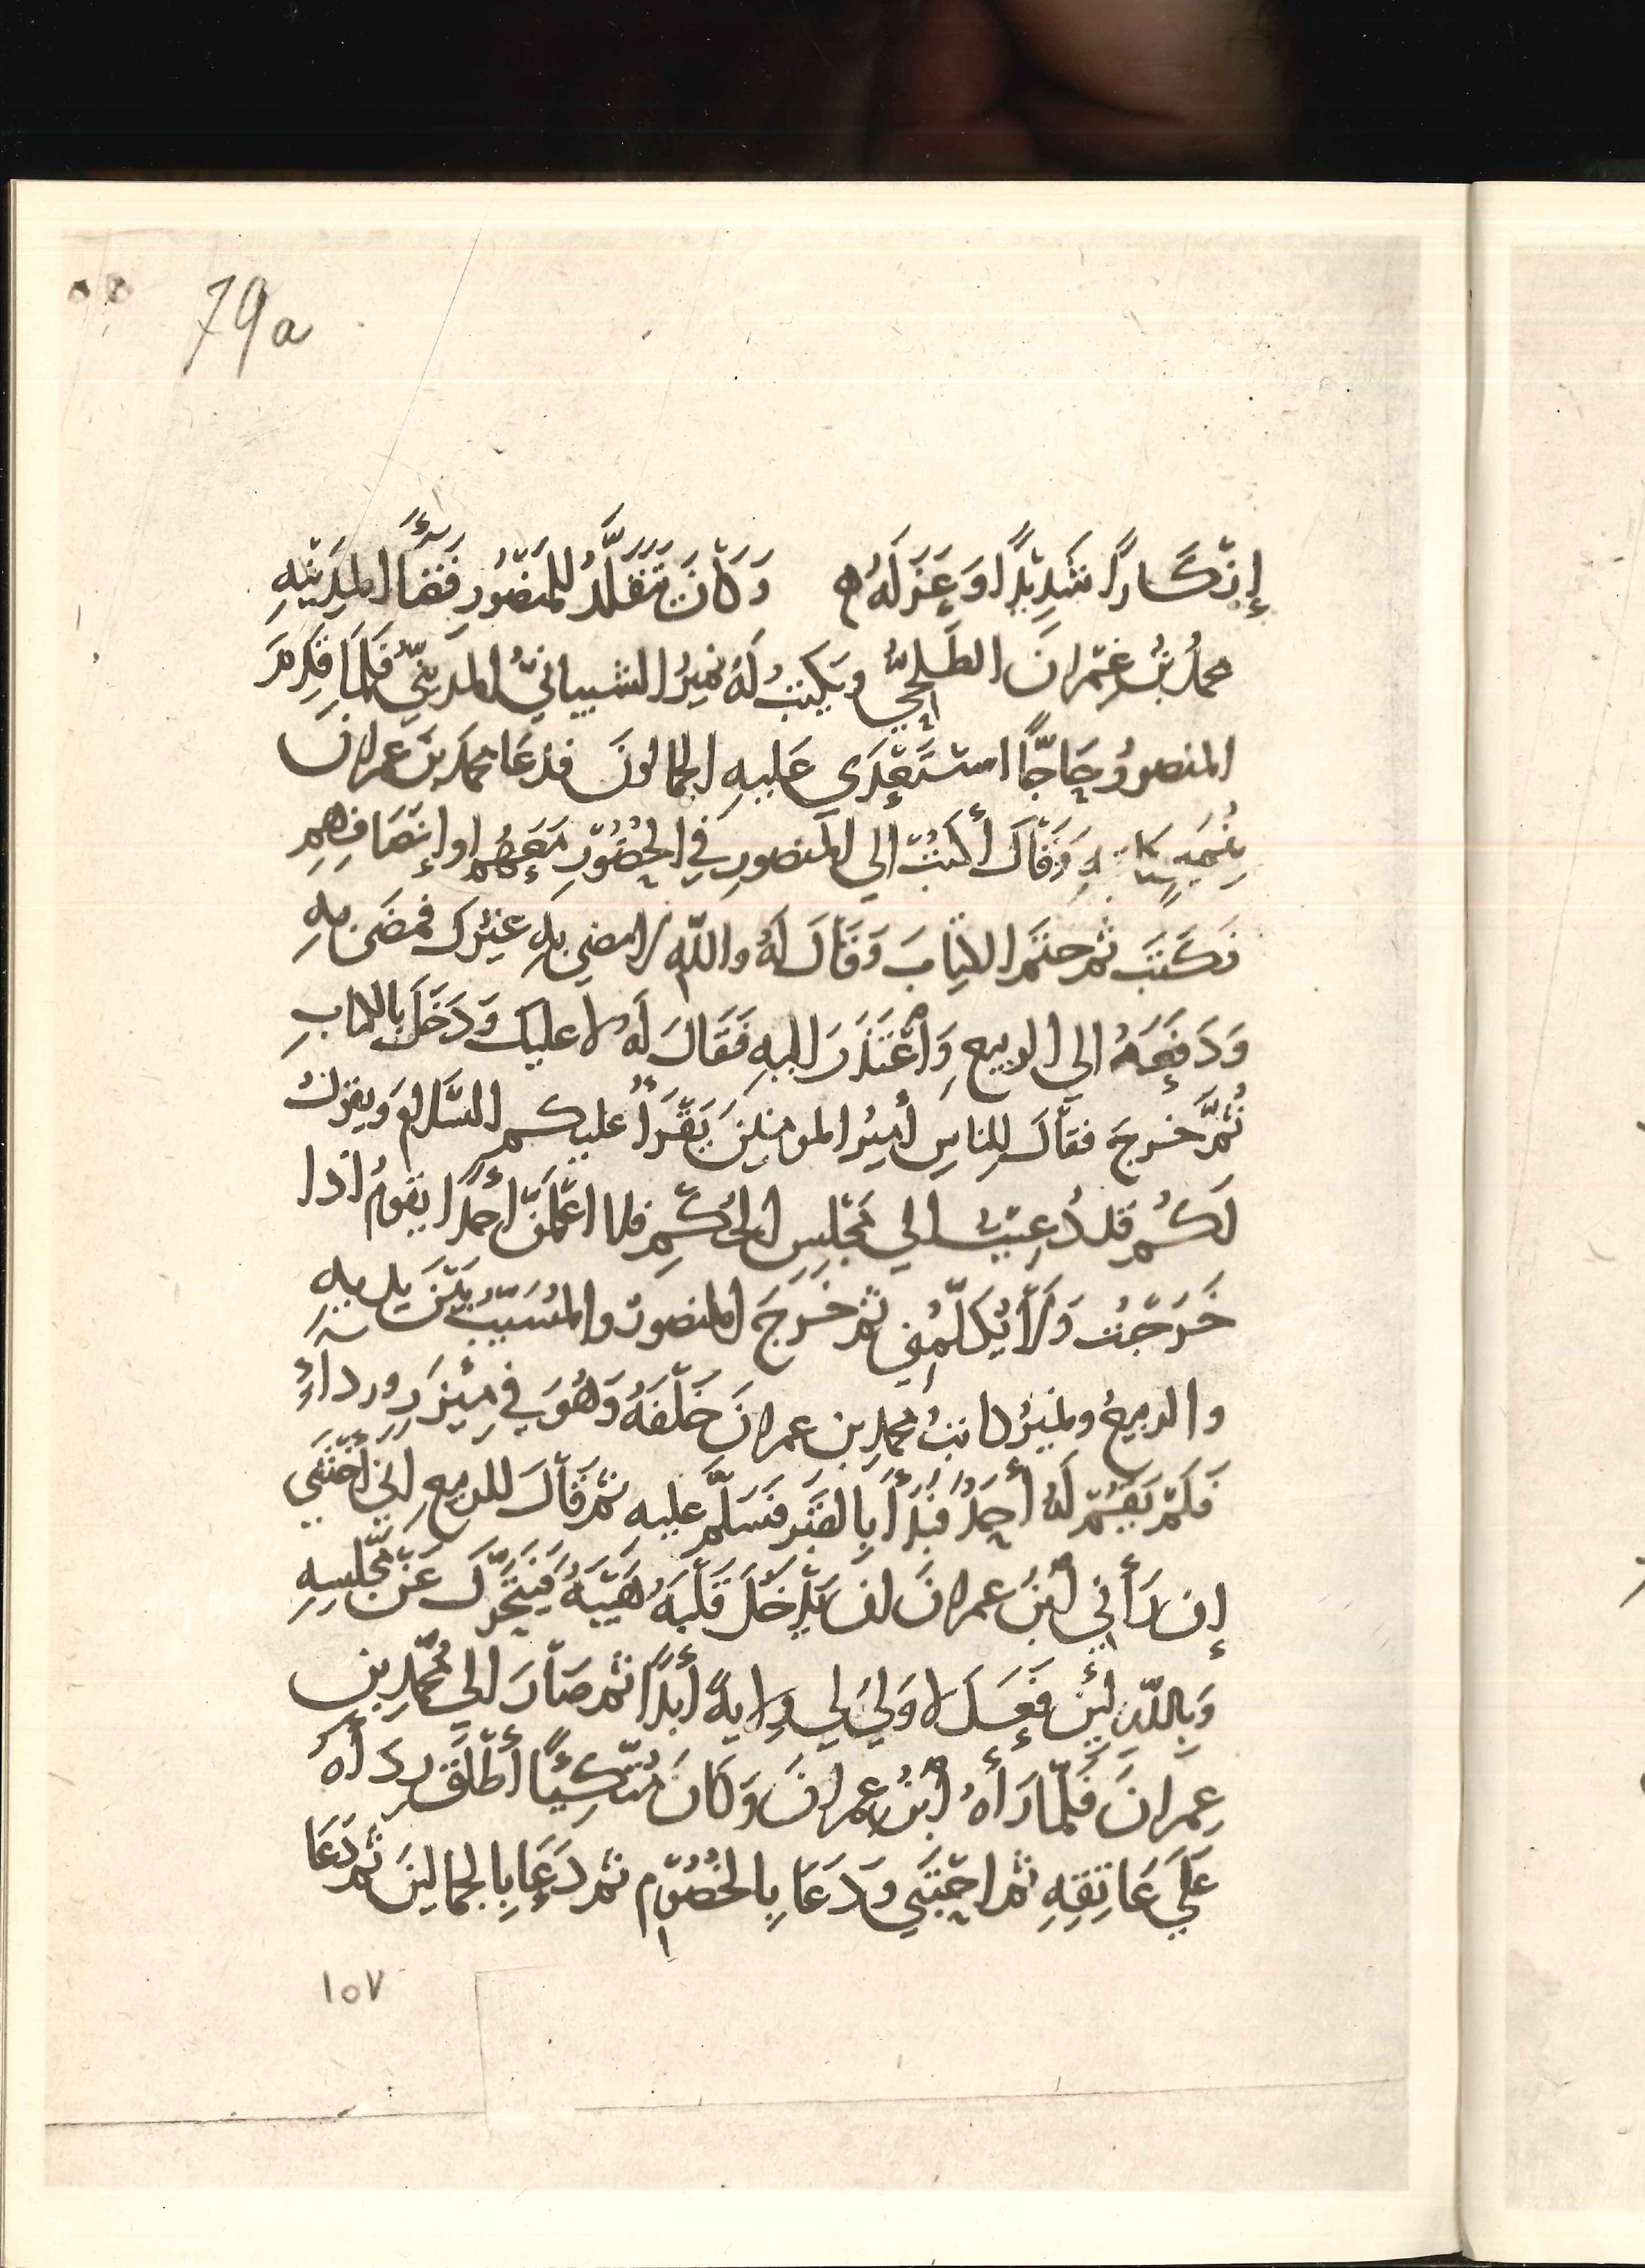 79a
إنْكَارًا شَدِيْدًا وَعَزَلَهُ ه وَكَانَ يَتَقَلَّدُ للمَنْصُوْرِ قَضَاءَ المَدِيْنَةِ
محمدُ بْنُ عِمْرانَ الطَلْحِيُّ ويَكْتُبُ لَهُ نميرُ الشيبانيُّ المَدِينيُّ فَلَمَّا قَدِمَ
المنصورُ حَاجًّا اسْتَعْدَى عَلَيهِ الجمالونَ فدَعَا محمد بنَ عِمرانَ
بِنُمَيرٍ كاتبهِ وَقَالَ أكْتُبْ الي المَنصورِ فِي الحُضُوْرِ مَعَهُم او إنْصَافِهِم
فَكَتَبَ ثم ختَمَ الكِتابَ وَقَالَ لَهُ واللّٰهِ لا مضي بِهِ غَيْرَك فمضَى بهِ
وَدَفَعَهُ الي الربيع وَاعْتَذَرَ اليهِ فَقَالَ لَهُ لا عليك وَدَخَلَ بالكتابِ
ثُمَّ خرجَ فقَالَ لِلناسِ أمِيرُ المومنِينَ يَقْرَأُ عليكم السَّلامَ ويقولُ
لَكُم قد دُعِيْتُ الي مَجْلِسِ الحُكْمِ فلا اعْلَمَنَّ احدًا يقومُ اذا
خَرَجْتُ وَلَا يُكَلِّمُنِي ثم خَرَجَ المنصورُ والمُسَيّبُ بَيْنَ يديهِ
والربيعُ ونميرُ كاتبُ محمدِ بن عمرانَ خَلْفَهُ وَهُوَ فِي مِئزَرٍ ورداءٍ
فَلَمْ يَقُمْ لَهُ أحَدٌ فَبَدَأَ بِالقَبْرِ فَسَلَّمَ عليهِ ثم قَالَ للربيعِ إنِّي أخْشَي
إن رَأَني ابْنُ عمرانَ ان تَدْخُلَ قَلْبَهُ هَيْبَةٌ فَيَتَحَوَّلَ عَنْ مَجْلِسِهِ
وَبِاللّٰهِ لَئِن فَعَلَ لا وَلِيَ لِي وِلايةً أَبَدًا ثم صَارَ الي مُحَمّدِ بنِ
عِمرانَ فَلَمّا رَأَهُ ابْنُ عِمرانَ وَكَانَ مُتَّكِئًا أطْلَقَ رِدَاهُ
عَلَي عَاتِقِهِ ثم احْتَبَي وَدَعَا بِالخُصُوْمِ ثم دَعَا بِالجمالِينَ ثم دَعَا
١٥٧